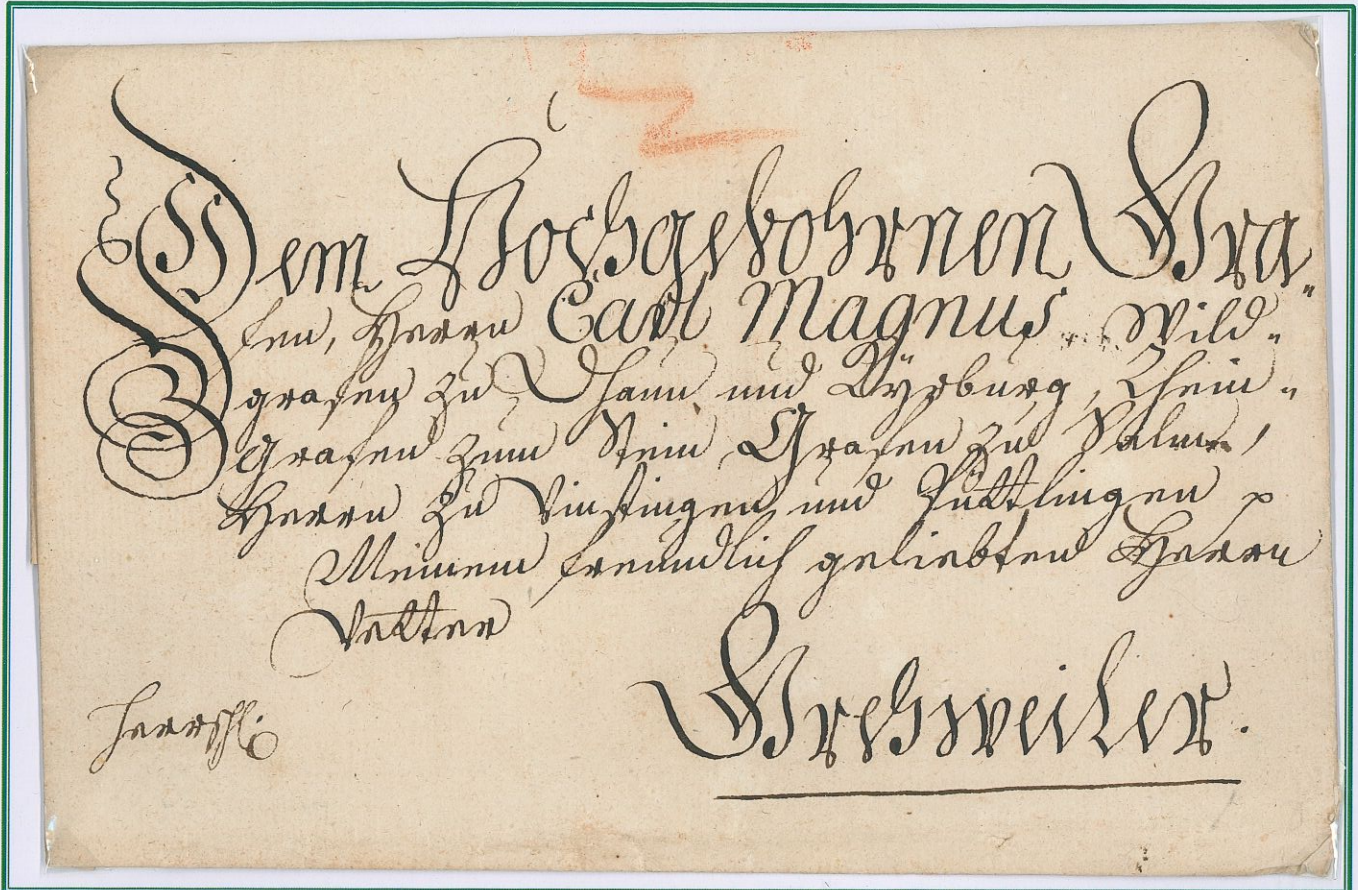 Dem Hochgebohrnen Gra„
fen, Herrn Carl Magnus Wild„
grafen zu Dhaun und Kÿrburg, Rhein„
Grafen zum Stein, Grafen zu Salm,
Herrn zu Vinstingen und Püttlingen p
Meinem freundlich geliebten Herrn
Vetter
Grehweiler.
herrschl: